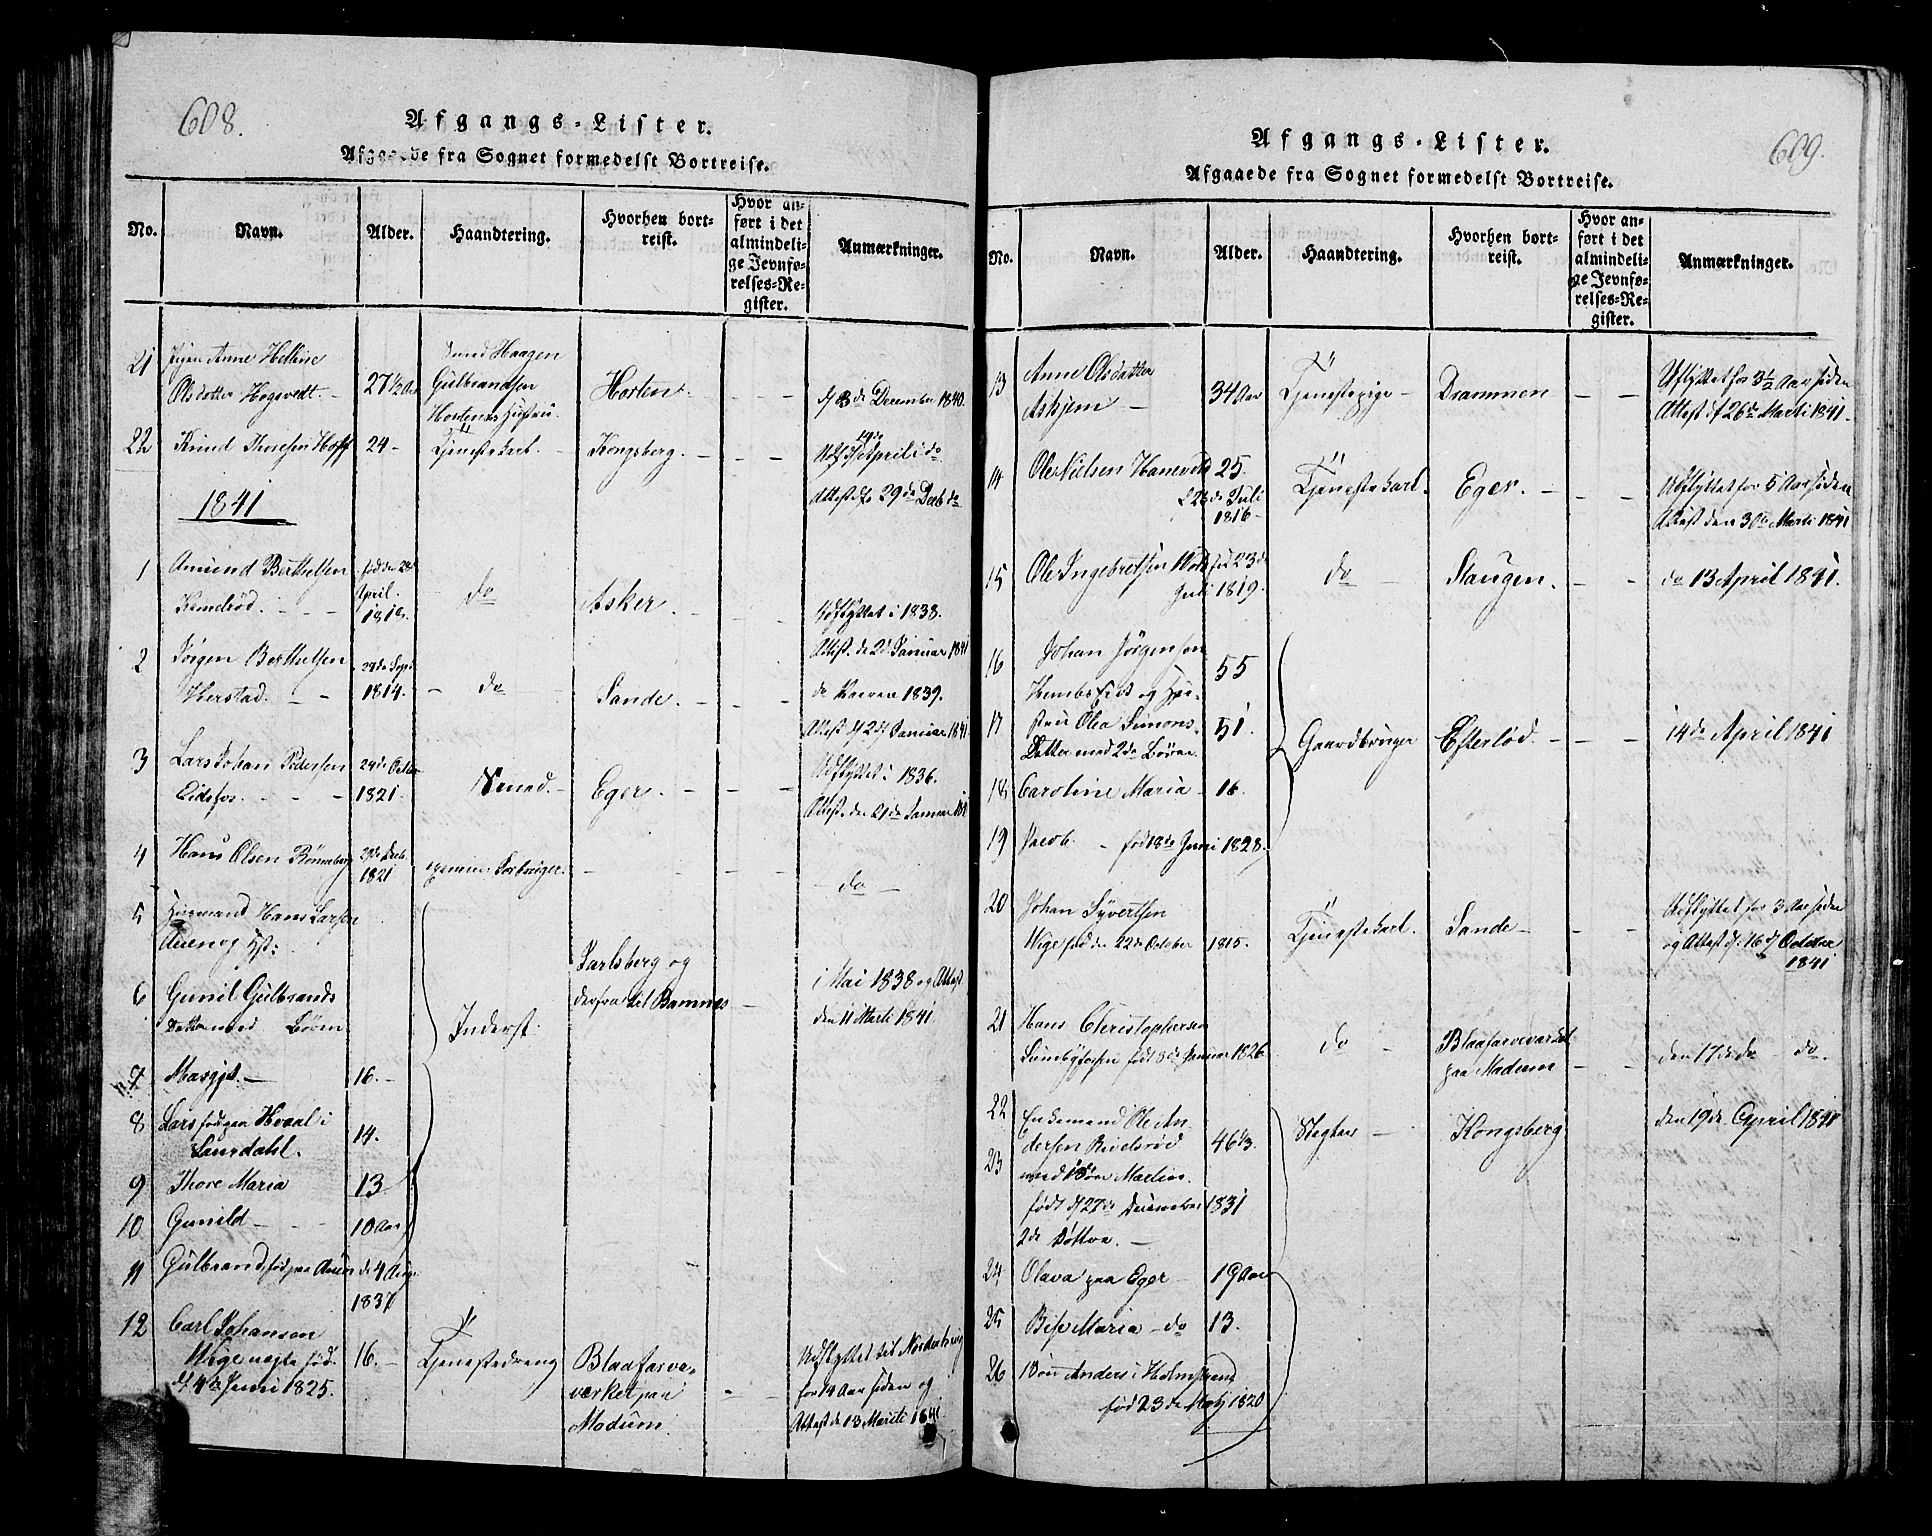 608.
Afgangs-Lister.
Afgaaede fra Sognet formedelst Bortreise.
No.
Navn.
Alder.
Haandtering.
Hvorhen bortreist.
Hvor anført i det almindelige Jevnførelses-Register.
Anmærkninger.
21 Pigen Anne Helvine
Olsdatter Hogsvedt. 27½ Aar
Smed Haagen
Gulbrandsen
Hortens Hustru.
Horten.
d 13de December 1840.
22 Knud Thoresen Hoff 24 Tjenestekarl. Kongsberg.
14de April
Attest d. 29de Decb. do
1841
1 Amund Berthelsen
født den 28de April 1818.
do
Asker.
Udflyttet i 1838.
Attest. de 2d Januar 1841
2 Jørgen Berthelsen
Herstad.
28de Sept. 1814.
do
Sande.
1839.
Attest d 2d Januar 1841
3 Lars Johan Pedersen
Eidsfos.
24de October 1821.
Smed.
Eger.
Udflyttet i 1836.
Attest. den 21de Januar
4 Hans Olsen Rønneberg
1821
do
5 Huusmand Hans Larsen
Auen og Hst:
6 Gunil Gulbrands
Datter med Børn
Inderst.
Jarlsberg og
derfra til Bamnes
i Mai 1838 og Attest
den 11 Marti 1841
7 Margit. 16.
8 Lars født paa Hvaal i
Laurdahl. 14.
9 Thore Maria 13
10 Gunild 10 Aar
11 Gulbrand fød paa Auen d. 4 Aug.
1837
12 Carl Johansen
Wige uægte fød.
d 4de Juni 1825.
16.
Tjenestedreng
Blaafarve-
værket paa
Modum.
Udflyttet til
for 14 Aar siden og
Attest d 13 Marti 1841.
609.
Afgangs-Lister.
Afgaaede fra Sognet formedelst Bortreise.
No.
Navn.
Alder.
Haandtering.
Hvorhen bortreist.
Hvor anført i det almindelige Jevnførelses-Register.
Anmærkninger.
13 Anne Olsdatter
Askjem
34 Aar
Tjenestepige
Drammen
Uflyttet for 3½ Aar siden
Attest d 26de Marti 1841.
14 Ole Nielsen Hanevold 25.
f. 28de Juli
1816
Tjenestekarl.
Eger.
Udflyttet for 5 Aar siden
Attest den 30te Marti 1841
15 Ole Ingebretsen fød 23de
Juli 1819.
do
Skaugen.
do 13 April 1841.
16 Johan Jørgensen
og Hu-
55
17 stru Olea Simons-
Datter med 2de Børn
51.
Gaardbruger
Efterlød.
14de April 1841
18 Caroline Maria 16.
19 Jacob. født 18de Juni 1828.
20 Johan Syvertsen
Wige fød den 22de October 1815.
Tjenestekarl.
Sande
Udflyttet for 3 Aar siden
og Attest d. 16 d October
1841
21 Hans Christophersen
født 8de Januar 1826.
do
Blaafarveværket
paa Modum
den 17de do do.
22 Enkemand Ole An-
dersen
46⅓.
Slagter
Kongsberg
den 19de April 1841
23 med Søn Martin.
født d 27de December 1831
2de Døttre.
24 Olava paa Eger 19 Aar
25 Maria do 13.
26 Søn Anders i Holmstrand
fød 23de Maj 1820